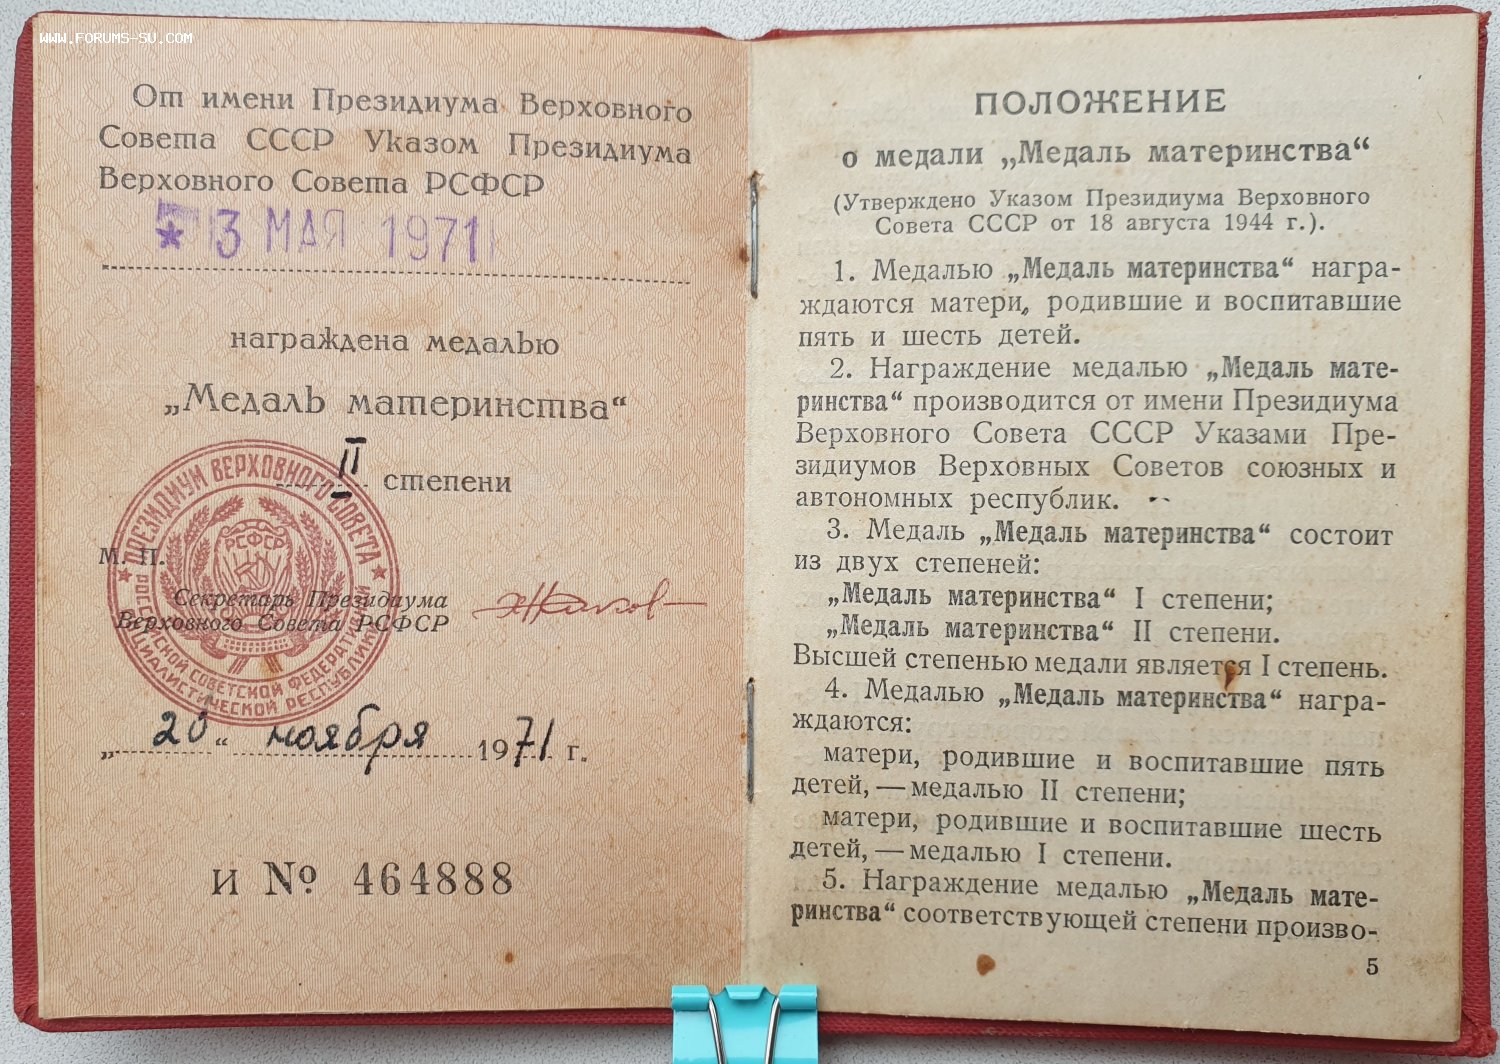 WWW.FORUMS-SU.COM
От имени Президиума Верховного
Совета СССР Указом Президиума
Верховного Совета РСФСР
★ 3 МАЯ 1971
награждена медалью
„Медаль материнства“
II степени
ПРЕЗИДИУМ ВЕРХОВНОГО СОВЕТА
РОССИЙСКОЙ СОВЕТСКОЙ ФЕДЕРАТИВНОЙ
СОЦИАЛИСТИЧЕСКОЙ РЕСПУБЛИКИ
РСФСР
М. П.
Секретарь Президиума
Верховного Совета РСФСР
„20“ ноября 1971 г.
И № 464888
ПОЛОЖЕНИЕ
о медали „Медаль материнства“
(Утверждено Указом Президиума Верховного
Совета СССР от 18 августа 1944 г.).
1. Медалью „Медаль материнства“ награ-
ждаются матери, родившие и воспитавшие
пять и шесть детей.
2. Награждение медалью „Медаль мате-
ринства“ производится от имени Президиума
Верховного Совета СССР Указами Пре-
зидиумов Верховных Советов союзных и
автономных республик.
3. Медаль „Медаль материнства“ состоит
из двух степеней:
„Медаль материнства“ I степени;
„Медаль материнства“ II степени.
Высшей степенью медали является I степень.
4. Медалью „Медаль материнства“ награ-
ждаются:
матери, родившие и воспитавшие пять
детей, — медалью II степени;
матери, родившие и воспитавшие шесть
детей, — медалью I степени.
5. Награждение медалью „Медаль мате-
ринства“ соответствующей степени произво-
5